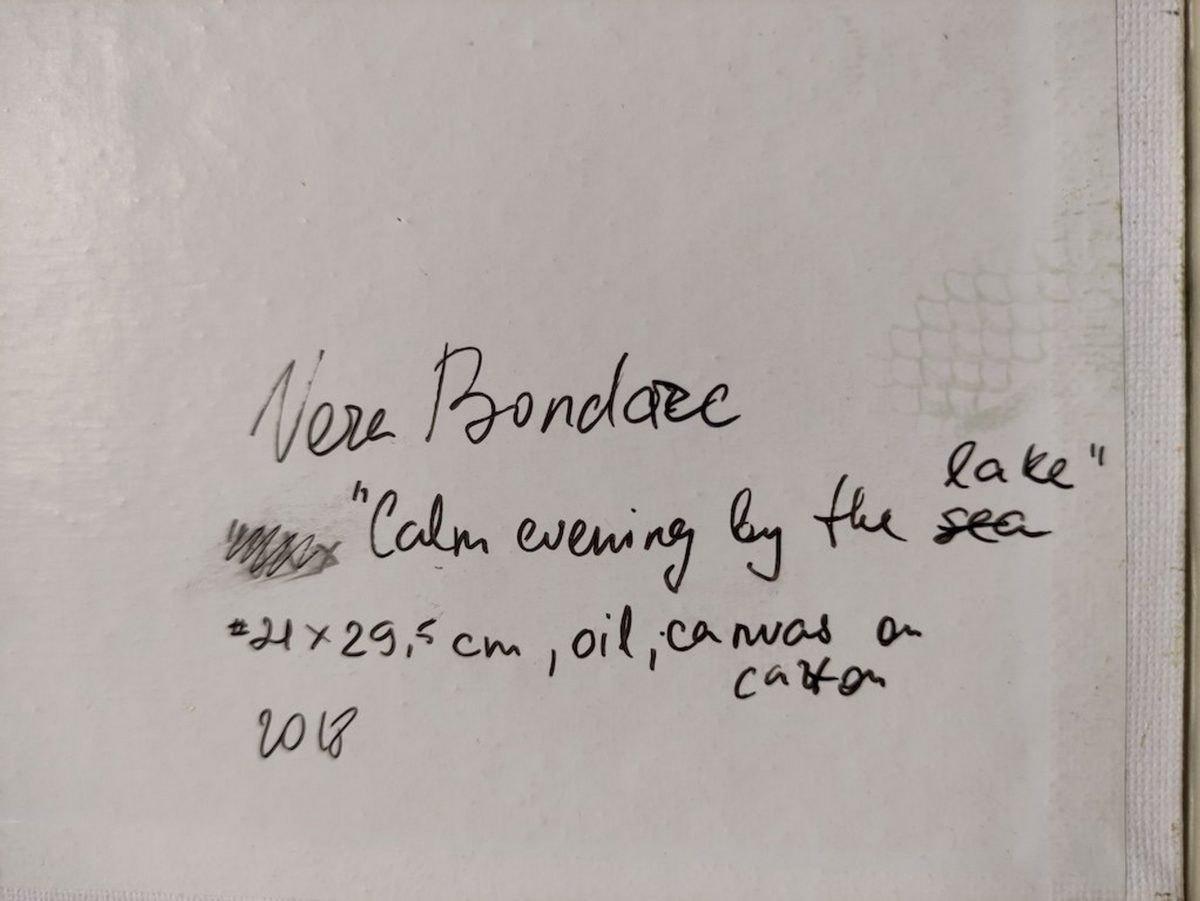 Vera Bondarc
"Calm evening by the sea lake"
21 x 29,5 cm, oil, canvas on
carton
2018